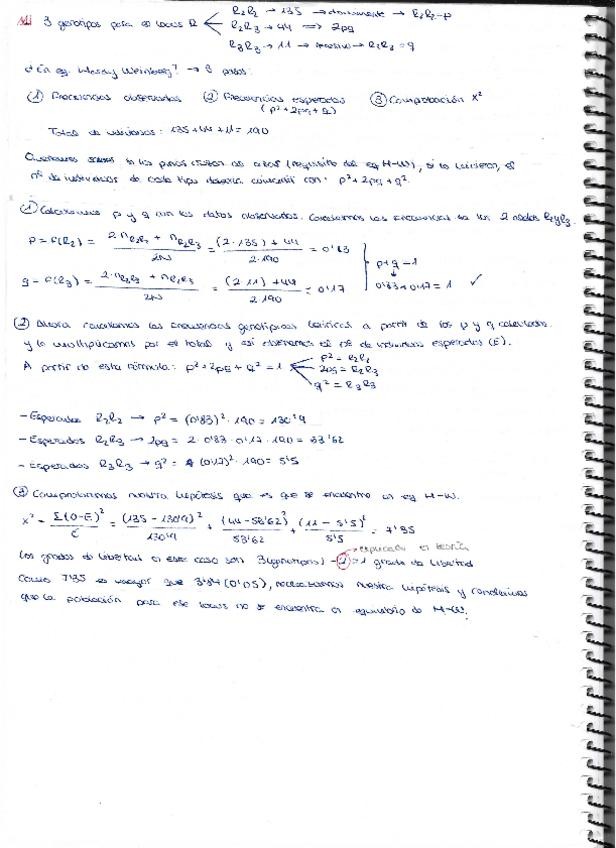 3 genotipos para el locus R R2R2 → 135 → dominante → R2R2 = p
R2R3 → 44 => 2pq
R3R3 → 11 → recesivo → R2R3 = q
¿En eq. Hardy Weinberg? → 3 pasos:
① Frecuencias observadas ② Frecuencias esperadas ③ Comprobación X²
(p²+2pq+q²)
Total de individuos: 135+44+11 = 190
Queremos saber si los cruzan al azar (requisito del eq H-W), si lo hicieran, el
nº de individuos de cada tipo debería coincidir con: p²+2pq+q².
① Calculamos p y q con los datos observados. Calculamos las frecuencias de los 2 alelos R2 y R3.
p = f(R2) = 2·nR2R2 + nR2R3 / 2N = (2·135) + 44 / 2·190 = 0'83
p+q = 1
q = f(R3) = 2·nR3R3 + nR2R3 / 2N = (2·11) + 44 / 2·190 = 0'17
0'83+0'17 = 1 ✓
② Ahora calculamos las frecuencias genotípicas teóricas a partir de los p y q calculados
y lo multiplicamos por el total y así obtenemos el nº de individuos esperados (E).
A partir de esta fórmula: p²+2pq+q² = 1 p² = R2R2
2pq = R2R3
q² = R3R3
- Esperados R2R2 → p² = (0'83)²·190 = 130'9
- Esperados R2R3 → 2pq = 2·0'83·0'17·190 = 53'62
- Esperados R3R3 → q² = (0'17)²·190 = 5'5
③ Comprobamos nuestra hipótesis que es que se encuentra en eq H-W.
X² = Σ(O-E)² / E = (135-130'9)² / 130'9 + (44-53'62)² / 53'62 + (11-5'5)² / 5'5 = 7'35
explicado en teoría
Los grados de libertad en este caso son 3 (genotipos) - 2 = 1 grado de libertad
Como 7'35 es mayor que 3'84 (0'05), rechazamos nuestra hipótesis y concluimos
que la población para ese locus no se encuentra en equilibrio de H-W.